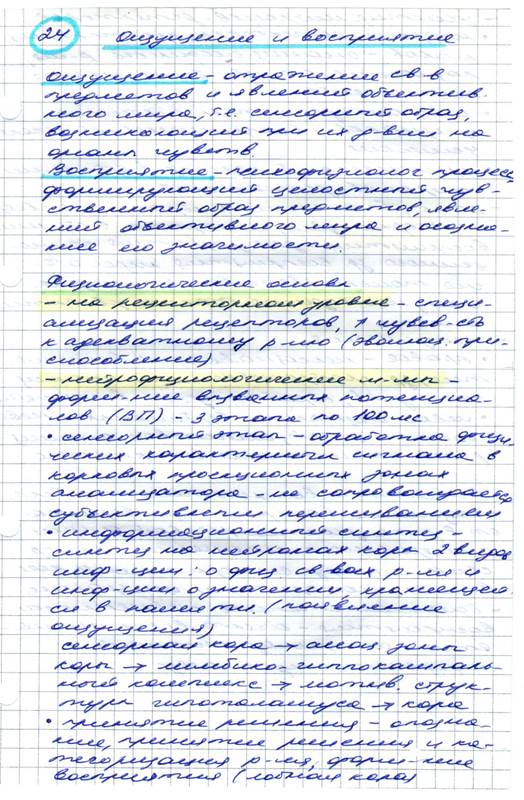 24 Ощущение и восприятие
Ощущение - отражение св-в
предметов и явлений объектив-
ного мира, т.е. сенсорный образ,
возникающий при их р-вии на
органы чувств.
Восприятие - психофизиолог процесс,
формирующий целостный чув-
ственный образ предметов, явле-
ний объективного мира и осозна-
ние его значимости.
Физиологические основы
- на рецепторном уровне - специ-
ализация рецепторов, ↑ чувв-сть
к адекватному р-лю (эволюц. при-
способление)
- нейрофизиологические м-мы -
форм-ние вызванных потенциа-
лов (ВП) - 3 этапа по 100 мс
• сенсорный этап - обработка физи-
ческих характеристик сигнала в
корковых проекционных зонах
анализатора - не сопровождается
субъективным переживанием
• информационный синтез -
синтез на нейронах коры 2 видов
инф-ции: о физ св-вах р-ля и
инф-ции о значении, хранящей-
ся в памяти. (появление
ощущения)
сенсорная кора → ассоц. зоны
коры → лимбико-гиппокампаль-
ный комплекс → мотив. струк-
туры гипоталамуса → кора
• принятие решения - опозна-
ние, принятие решения и ка-
тегоризация р-ля, форм-ние
восприятия (лобная кора)